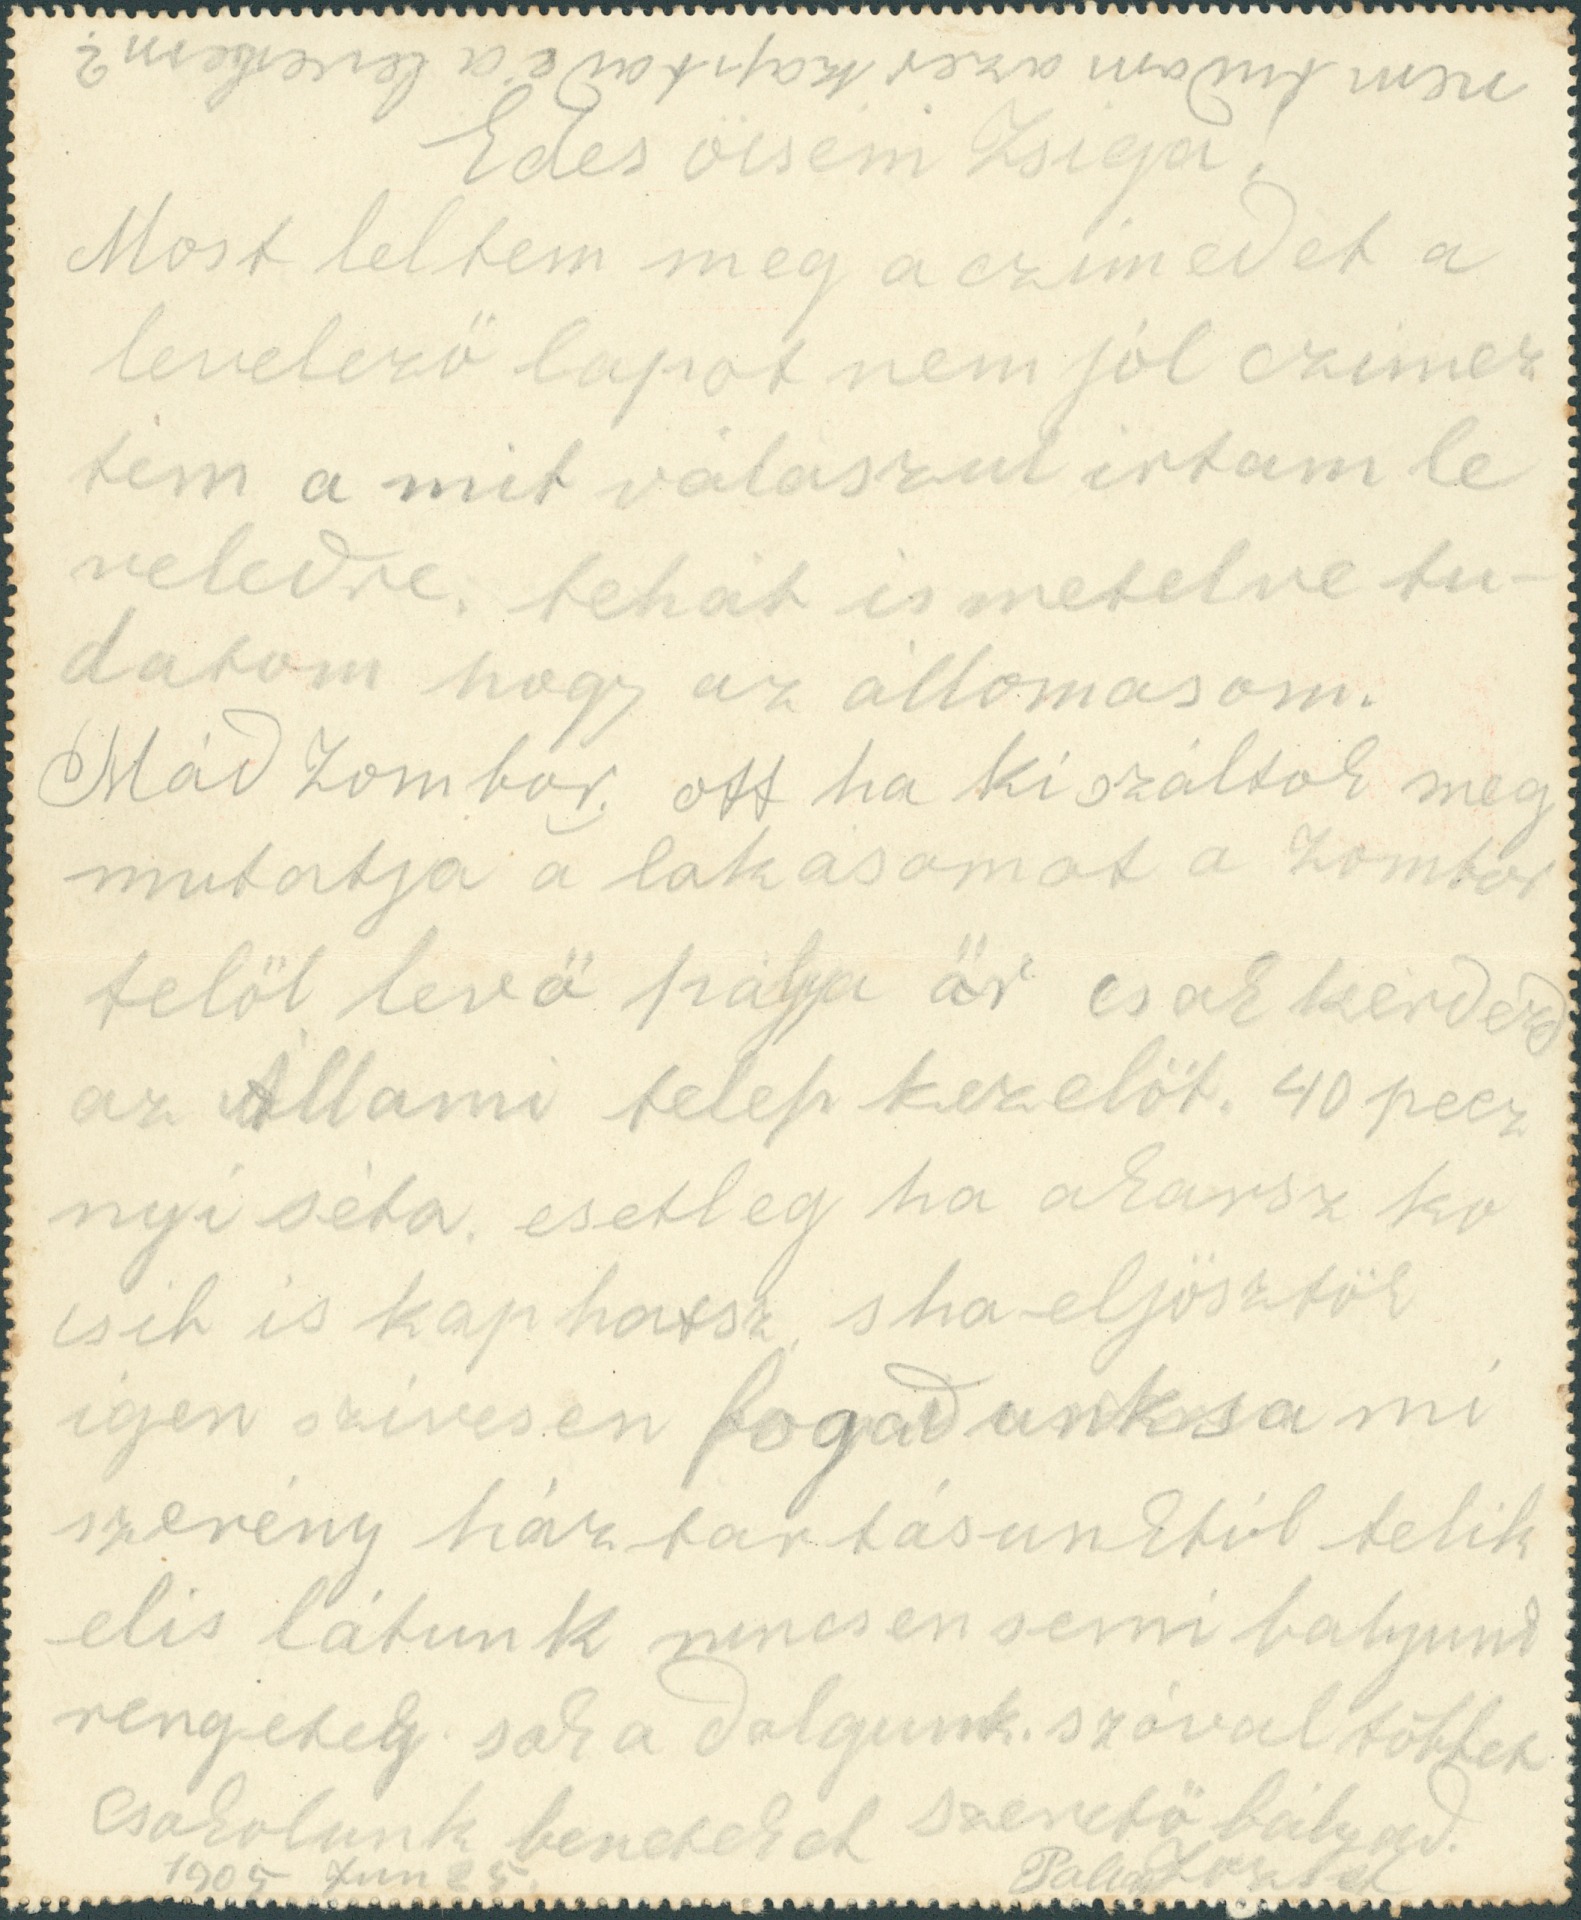 nem tudom azer kaptad é a levelem?
Edes öcsém Zsiga!
Most leltem meg a czimedet a
levelező lapot nem jól czimez
tem a mit válaszul irtam le
veledre. tehát ismetelve tu-
datom hogy az állomasom.
Mád Zombor. ott ha kiszáltok meg
mutatja a lakásomat a Zombor
felöl levő pálya őr csak kérdezd
az Állami telep kezelőt. 40 pecz
nyi séta. esetleg ha akarsz ko
csit is kaphatsz, s ha eljösztök
igen szivesen fogadunk s a mi
szerény háztartásunktól telik
elis látunk nincsen semi batyunk
rengeteg sok a dolgunk. szóval többet
csokolunk beneteket szerető bátyad.
1905 Jun 25. József